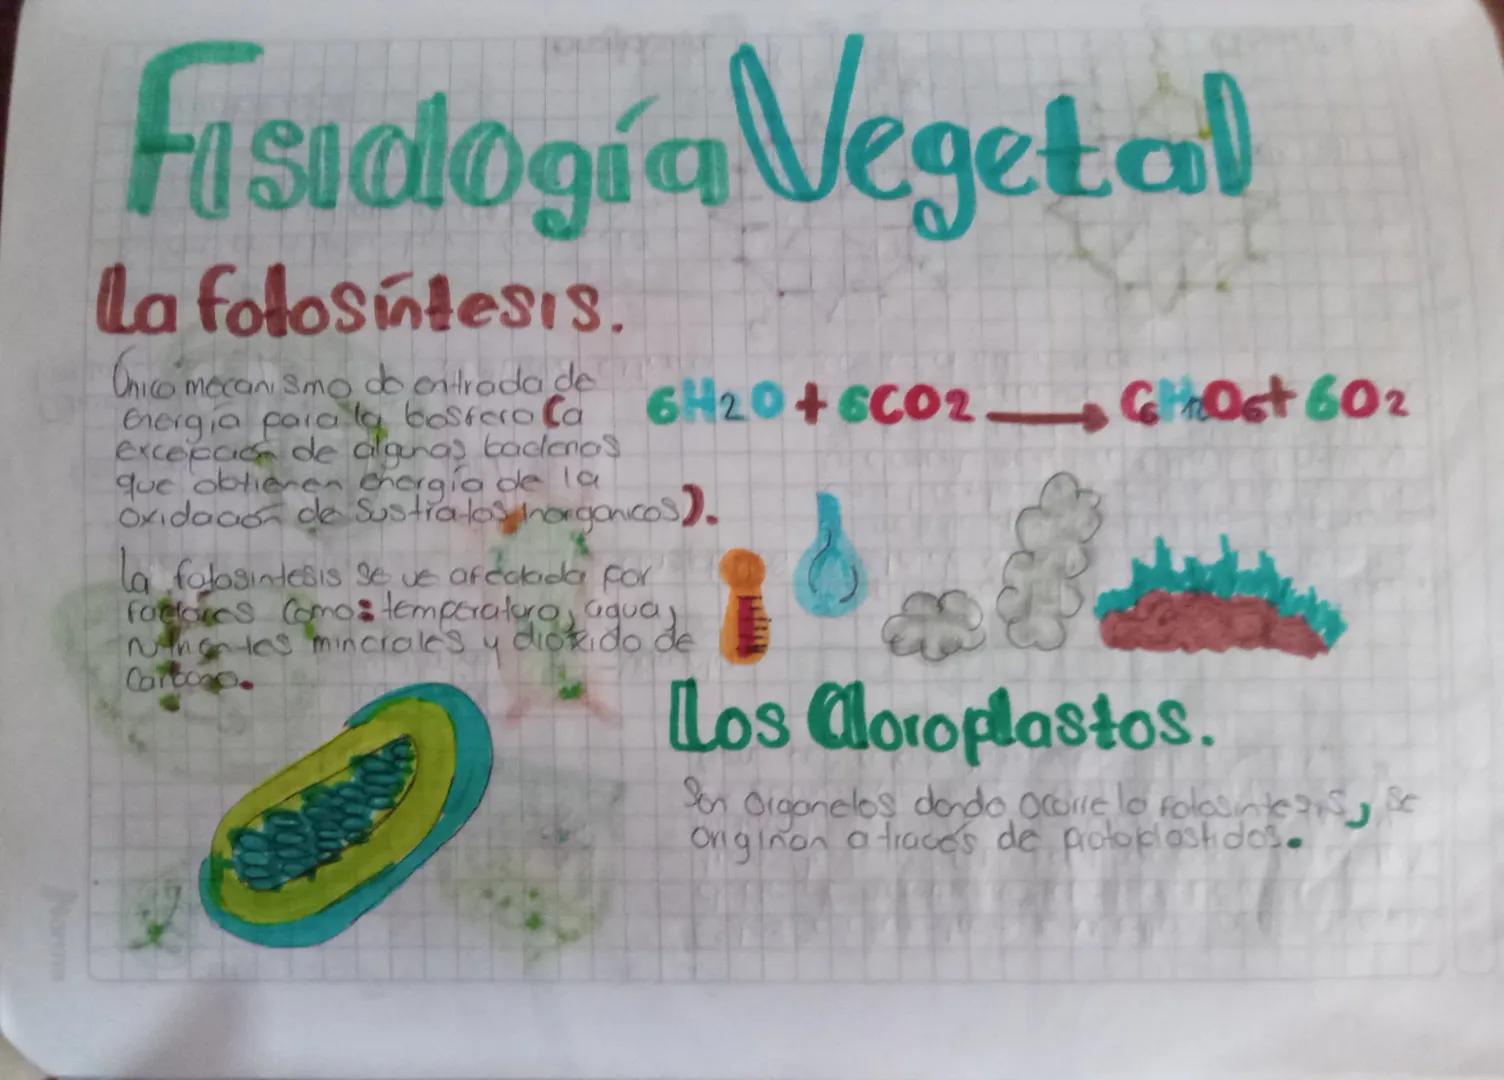 Fisiología Vegetal
La fotosíntesis.
Único mecanismo de entrada de
energía para la biosfera (a
excepción de algunas bacterias
que obtienen energía de la
oxidación de sustratos inorganicos).
6H2O + 6CO2 → C6H12O6 + 6O2
La fotosintesis se ve afectada por
factores como: temperatura, agua,
nutrientes minerales y dioxido de
Carbono.
Los Cloroplastos.
Son organelos donde ocurre la fotosintesis, se
originan a través de protoplastidos.